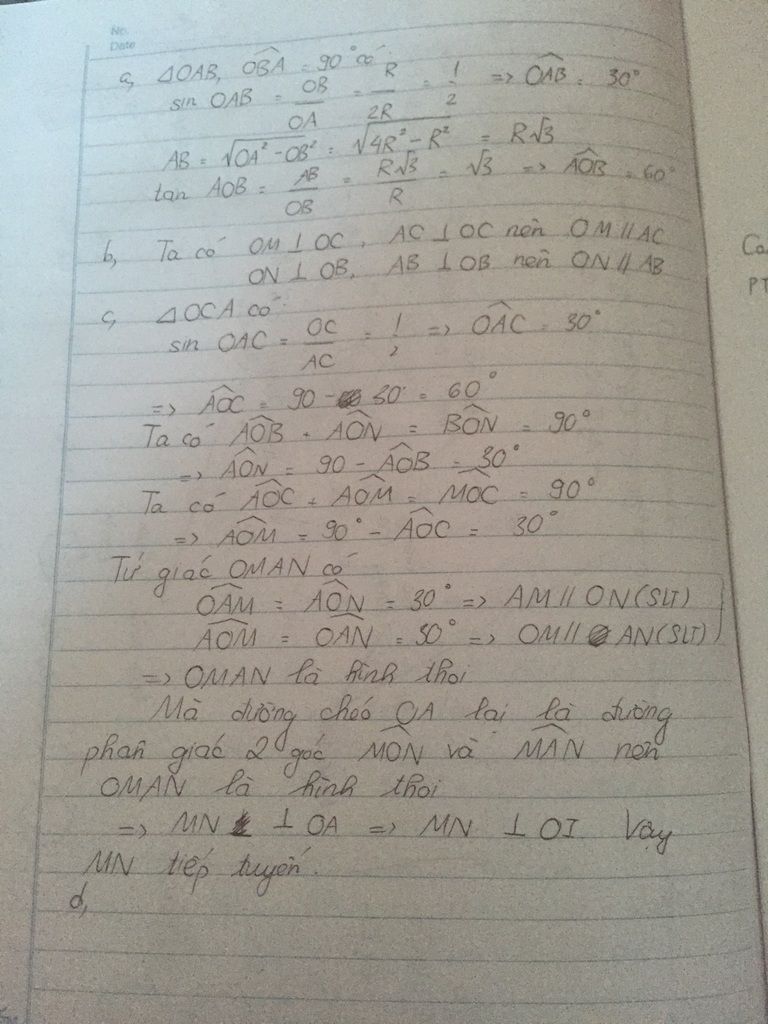 No.
Date
a, △OAB, OBA = 90° có:
sin OAB = OB/OA = R/2R = 1/2 => OAB = 30°
AB = √OA² - OB² = √4R² - R² = R√3
tan AOB = AB/OB = R√3/R = √3 => AOB = 60°
b, Ta có OM ⊥ OC, AC ⊥ OC nên OM // AC
ON ⊥ OB, AB ⊥ OB nên ON // AB
c, △OCA có
sin OAC = OC/AC = 1/2 => OAC = 30°
=> AOC = 90 - 30° = 60°
Ta có AOB + AON = BON = 90°
=> AON = 90 - AOB = 30°
Ta có AOC + AOM = MOC = 90°
=> AOM = 90° - AOC = 30°
Tứ giác OMAN có
OAM = AON = 30° => AM // ON (SLT)
AOM = OAN = 30° => OM // AN (SLT)
=> OMAN là hình thoi
Mà đường chéo OA lại là đường
phân giác 2 góc MON và MAN nên
OMAN là hình thoi
=> MN ⊥ OA => MN ⊥ OI Vậy
MN tiếp tuyến.
d,
Co
PT